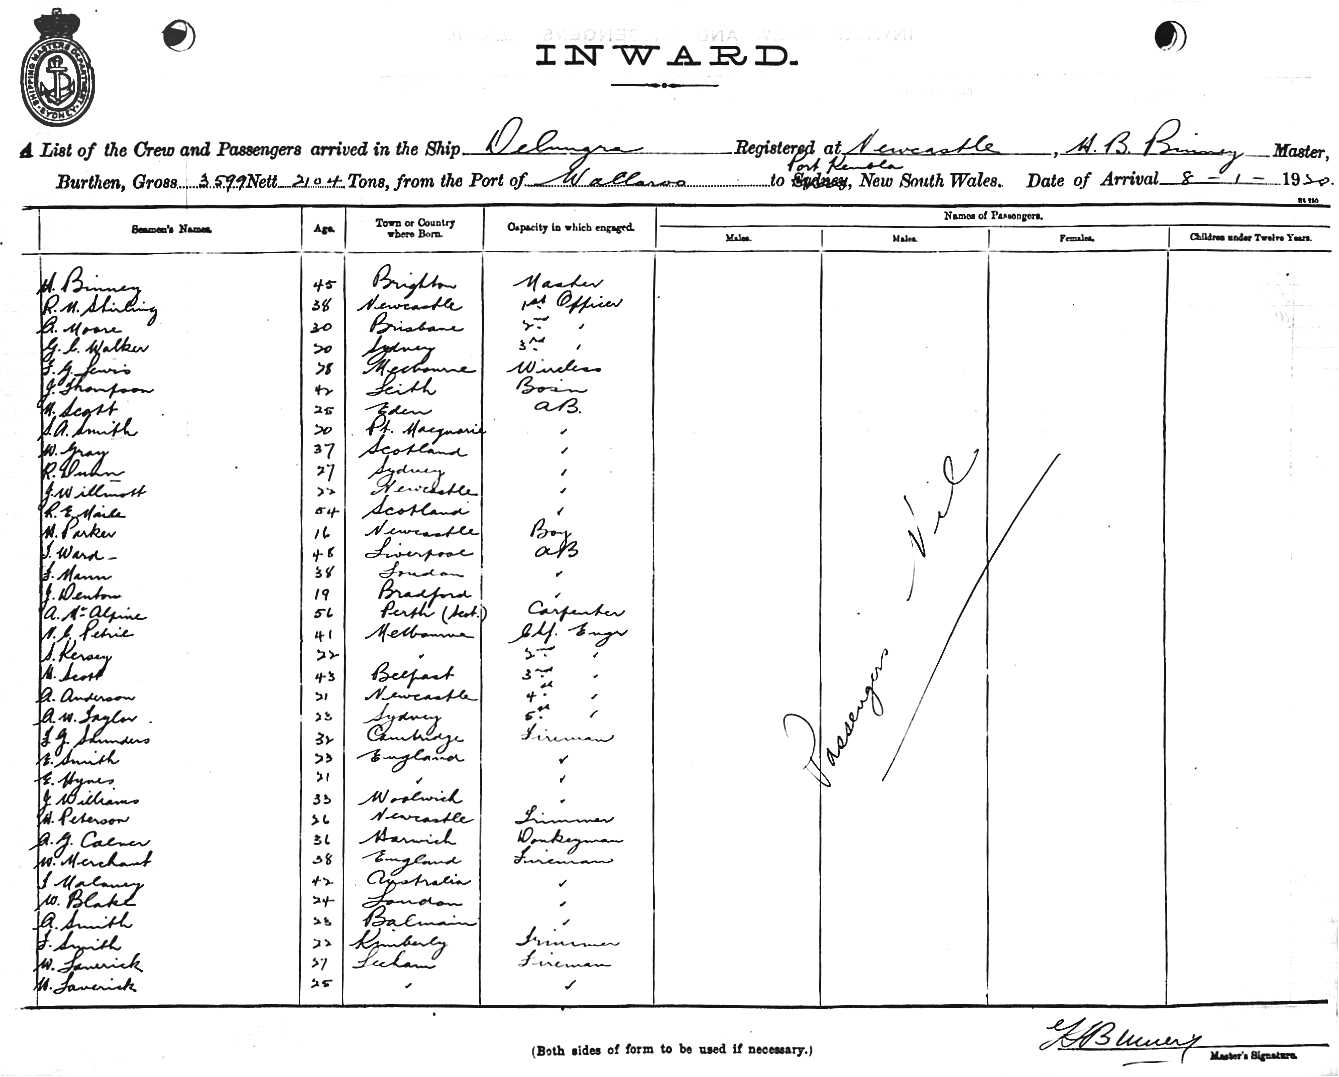 SHIPPING MASTERS DEPARTMENT SYDNEY
INWARD.
A List of the Crew and Passengers arrived in the Ship Delungra Registered at Newcastle, H. B. Binney Master,
Burthen, Gross 3599 Nett 2104 Tons, from the Port of Wallaroo to Sydney Port Kembla, New South Wales. Date of Arrival 8 - 1 - 1920.
Seamen's Names. Age. Town or Country where Born. Capacity in which engaged. Names of Passengers.
Males. Males. Females. Children under Twelve Years.
H. Binney 45 Brighton Master
R. M. Stirling 38 Newcastle 1st Officer
A. Moore 30 Brisbane 2nd "
G. C. Walker 20 Sydney 3rd "
F. G. Lewis 28 Melbourne Wireless
J. Thompson 42 Leith Bosn
M. Scott 25 Eden AB.
S. A. Smith 20 Pt. Macquarie "
W. Gray 37 Scotland "
R. Dunn 27 Sydney "
J. Willmott 22 Newcastle "
R. E. Maile 54 Scotland "
H. Parker 16 Newcastle Boy
J. Ward - 48 Liverpool AB
F. Mann 38 London "
J. Denton 19 Bradford "
A. Mc Alpine 56 Perth (Scot.) Carpenter
N. C. Petrie 41 Melbourne Chf. Engr
S. Kersey 22 " 2nd "
H. Scott 43 Belfast 3rd "
A. Anderson 21 Newcastle 4th "
A. W. Taylor 23 Sydney 5th "
F. G. Saunders 32 Cambridge Fireman
E. Smith 23 England "
E. Hynes 21 " "
J. Williams 33 Woolwich "
H. Peterson 26 Newcastle Trimmer
A. G. Calver 36 Harwich Donkeyman
W. Merchant 38 England Fireman
J Maloney 42 Australia "
W. Blake 24 London "
A. Smith 23 Balmain "
F. Smith 22 Kimberly Trimmer
W. Laverick 27 Fireman
W. Laverick 25 " "
Passengers - Nil
H B Binney
Master's Signature.
(Both sides of form to be used if necessary.)